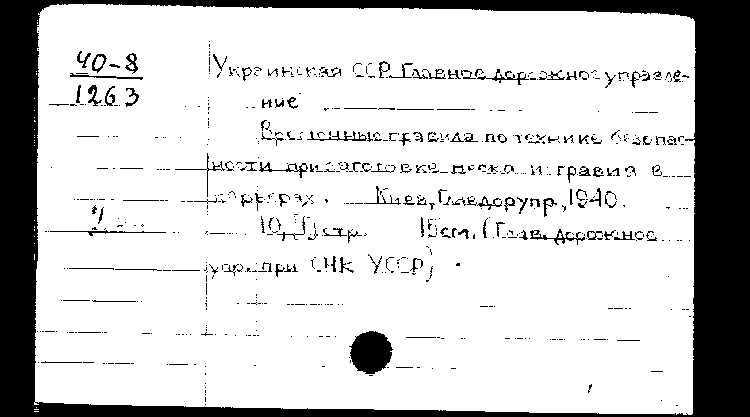 40-8
1263
Украинская ССР. Главное дорожное управле-
ние
Временные правила по технике безопас-
ности при заготовке песка и гравия в
карьерах. Киев, Главдорупр, 1940.
10, [1] стр. 15см. (Глав. дорожное
упр. при СНК УССР).